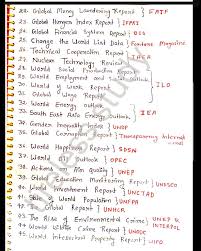 22. Global Money Laundering Report } FATF
23. Global Hunger Index Report } IFPRI
24. Global Financial System Report } BIS
25. Change the World List Data } Fortune Magazine
26. Technical Cooperation Report } IAEA
27. Nuclear Technology Review
28. World Social Protection Report
29. World Employment and Social Outlook } ILO
30. World of Work Report
31. Global Wage Report
32. World Energy Outlook } IEA
33. South East Asia Energy Outlook
34. Gender Inequality Report } UNDP
35. Global Corruption Report } Transparency International
36. World Happiness Report } SDSN
37. World Oil Outlook } OPEC
38. Actions on Air Quality } UNEP
39. Global Education Monitoring Report } UNESCO
40. World Investment Report } UNCTAD
41. State of World Population } UNFPA
42. Global Report } UNHCR
43. The Rise of Environmental Crime } UNEP & INTERPOL
44. World Wildlife Crime Report } UNODC
45. World Intellectual Property Report } WIPO